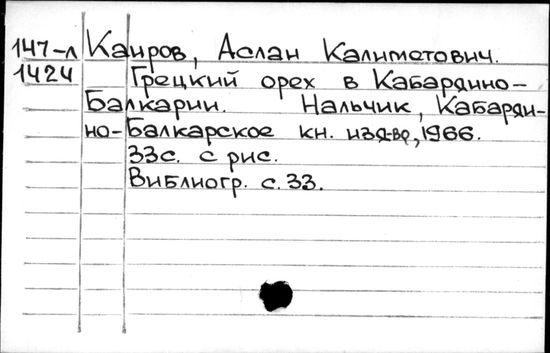 147-л Каиров, Аслан Калиметович.
1424 Грецкий орех в Кабардино-
Балкарии. Нальчик, Кабарди-
но-Балкарское кн. изд-во, 1966.
33с. с рис.
Библиогр. с.33.